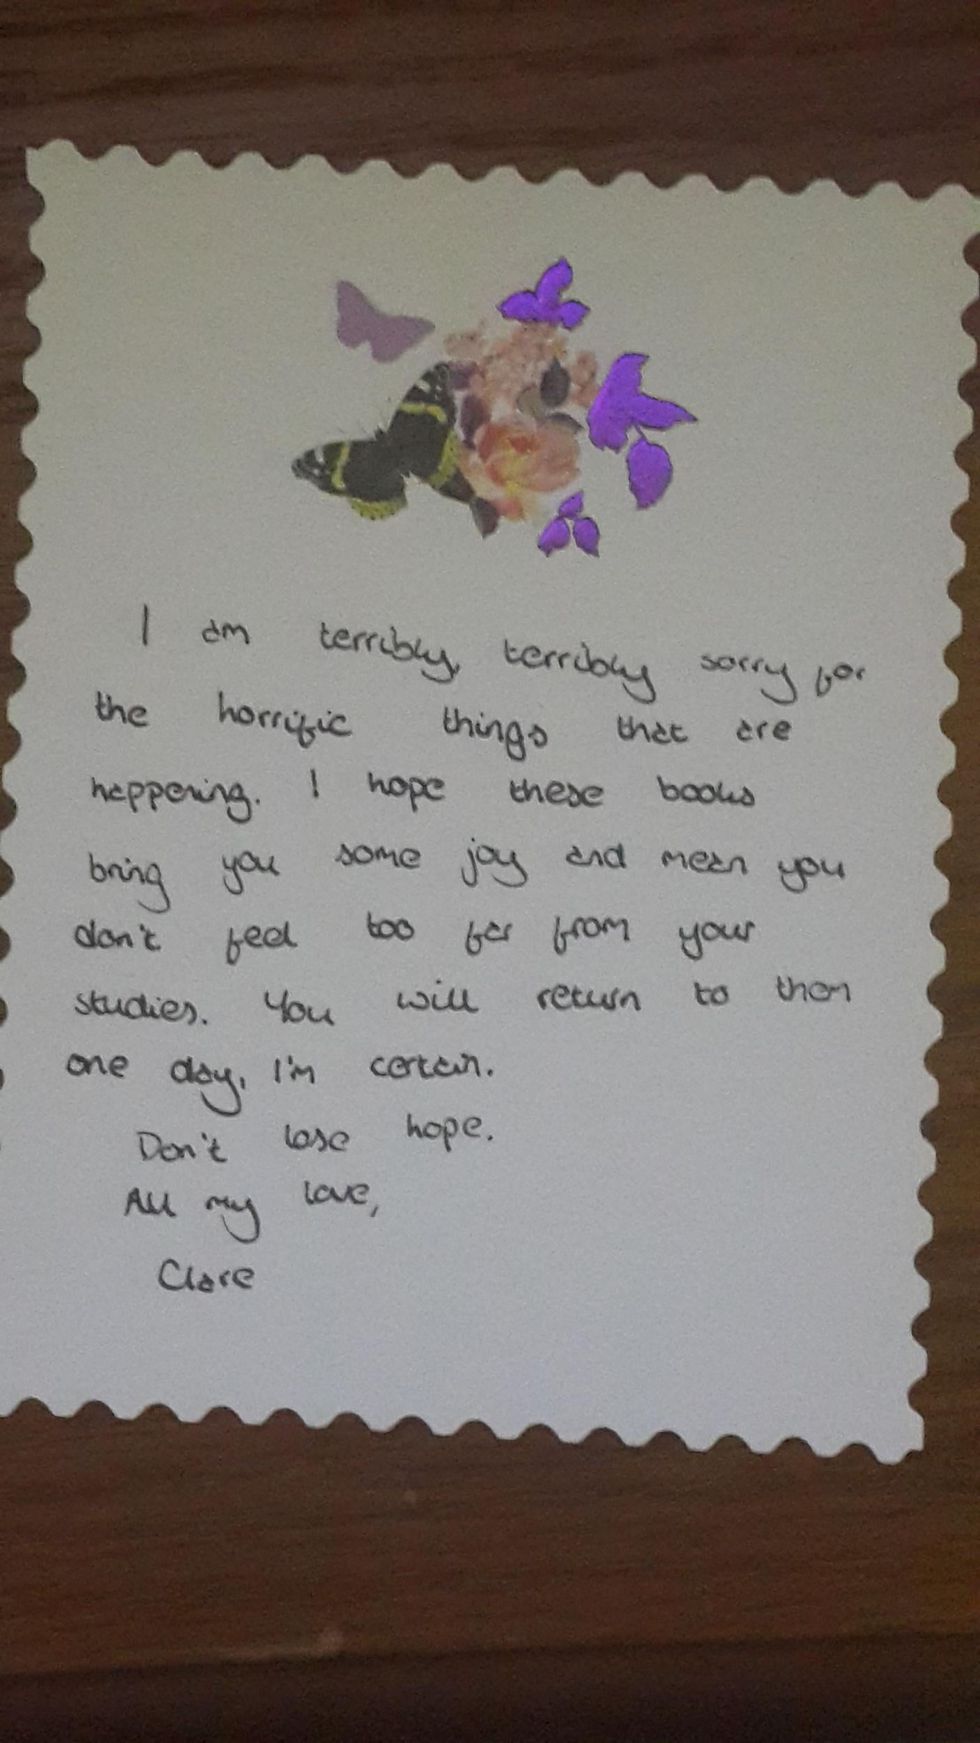 I am terribly, terribly sorry for
the horrific things that are
happening. I hope these books
bring you some joy and mean you
don't feel too far from your
studies. You will return to them
one day, I'm certain.
Don't lose hope.
All my love,
Clare